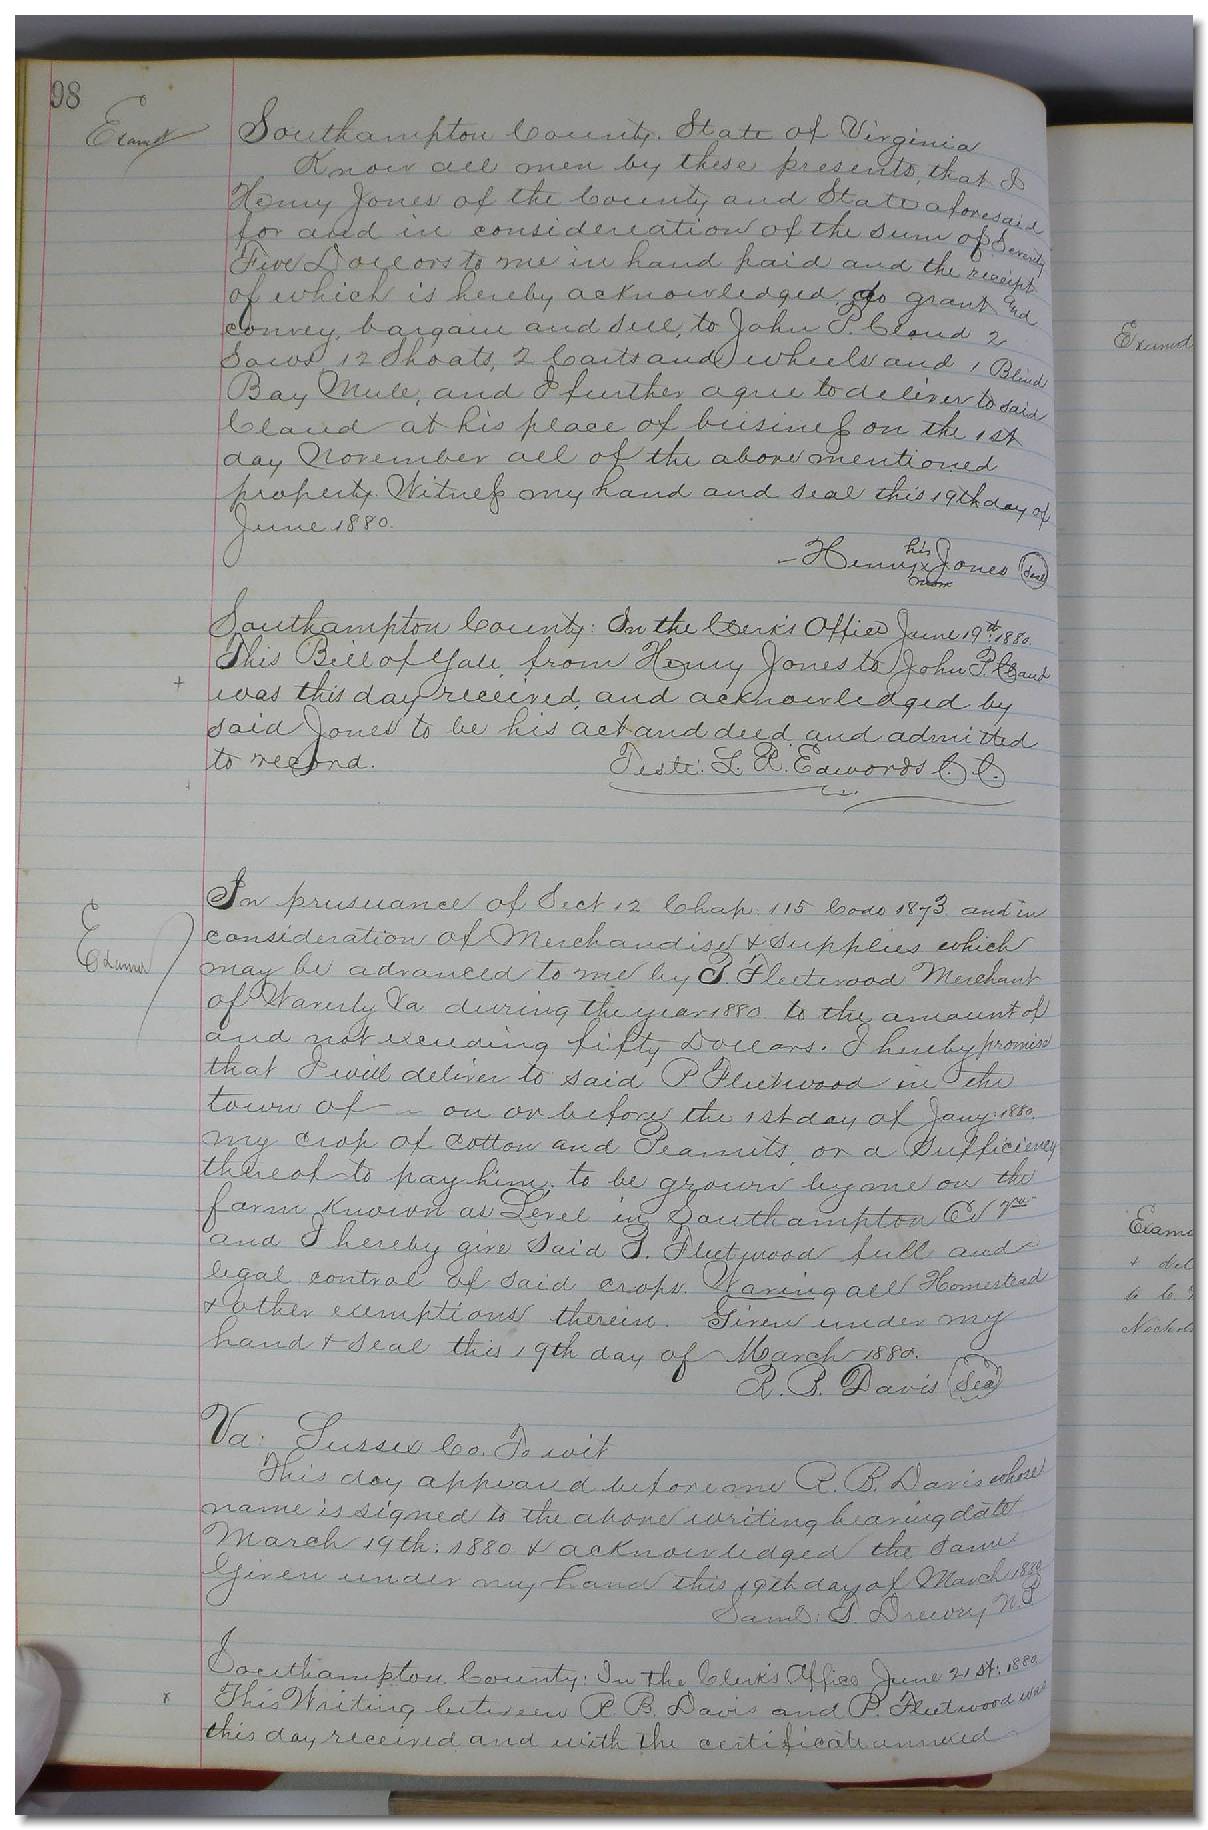 98
Examd
Southampton County. State of Virginia
Know all men by these presents, that I
Henry Jones of the County and State aforesaid
for and in consideration of the sum of Seventy
Five Dollars to me in hand paid and the receipt
of which is hereby acknowledged, do grant and
convey, bargain and sell, to John P. Claud 2
Sows 12 Shoats, 2 Carts and wheels and 1 Blind
Bay Mule, and I further agree to deliver to said
Claud at his place of business on the 1st
day November all of the above mentioned
property. Witness my hand and seal this 19th day of
June 1880.
his
Henry x Jones Seal
mark
Southampton County: In the Clerk's Office June 19th 1880.
This Bill of Sale from Henry Jones to John P. Claud
+ was this day received, and acknowledged by
said Jones to be his act and deed and admitted
to record.
Teste: L. R. Edwards C. C.
In prusuance of Sect 12 Chap. 115 Code 1873 and in
consideration of Merchandise & supplies which
may be advanced to me by P. Fleetwood Merchant
of Waverly Va during the year 1880 to the amount of
and not exceeding fifty Dollars. I hereby promise
that I will deliver to said P Fleetwood in the
town of — on or before the 1st day of Jany: 1880.
my crop of cotton and Peanuts, or a sufficiency
thereof to pay him, to be grown by me on the
farm known as Level in Southampton Co Va
and I hereby give said P. Fleetwood full and
legal control of said crops. Waving all Homestead
& other exemptions therein. Given under my
hand & seal this 19th day of March 1880.
R. B. Davis Seal
Va: Sussex Co. To wit
This day appeared before me R. B. Davis whose
name is signed to the above writing bearing date
March 19th: 1880 & acknowledged the same
Given under my hand this 19th day of March 1880
Saml: T. Drewry N. P.
Southampton County: In the Clerk's Office June 21st: 1880
x This Writing between R. B. Davis and P. Fleetwood was
this day received and with the certificate annexed
Examd
Exam